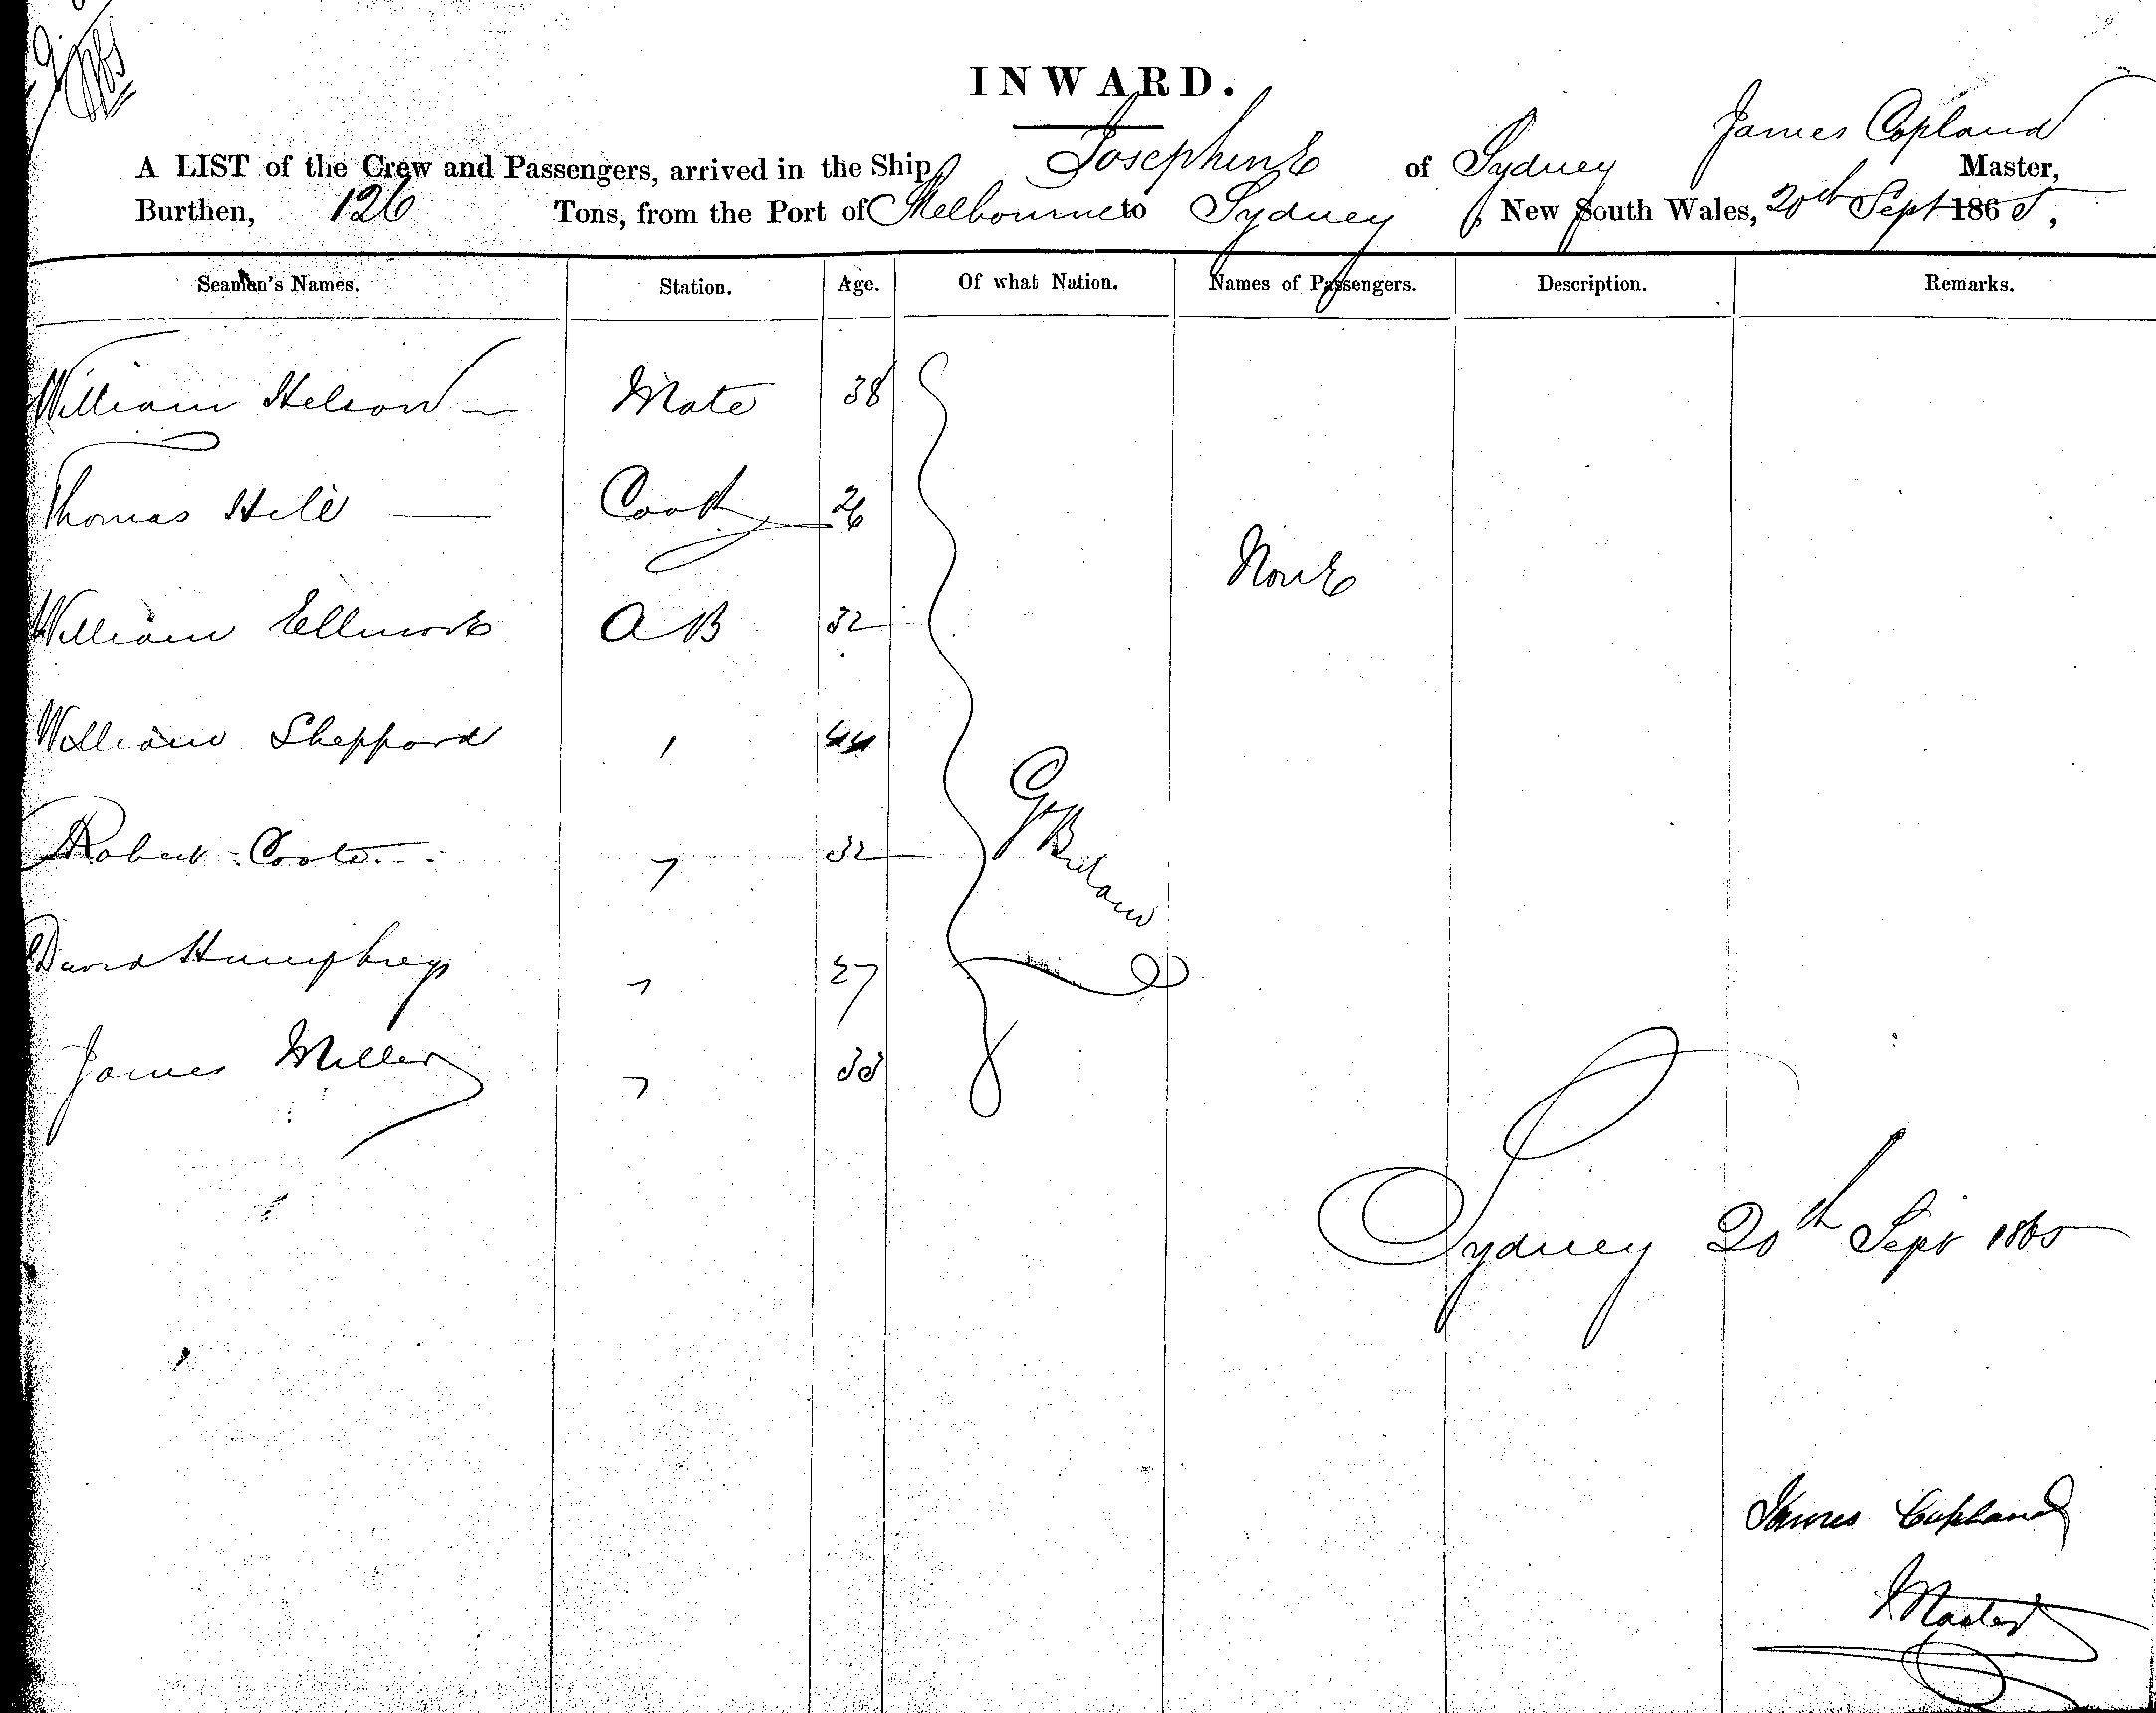 INWARD.
James Copland
A LIST of the Crew and Passengers, arrived in the Ship, Josephine of Sydney Master,
Burthen, 126 Tons, from the Port of Melbourne to Sydney, New South Wales, 20th Sept 1865,
Seamen's Names. Station. Age. Of what Nation. Names of Passengers. Description. Remarks.
William Nelson Mate 38
Thomas Hill Cook 26
None
William Ellmore A B 32
William Sheppard " 44
Gt Britain
Robert Coote " 32
David Humphreys " 27
James Miller " 33
Sydney 20th Sept 1865
James Copland
Master